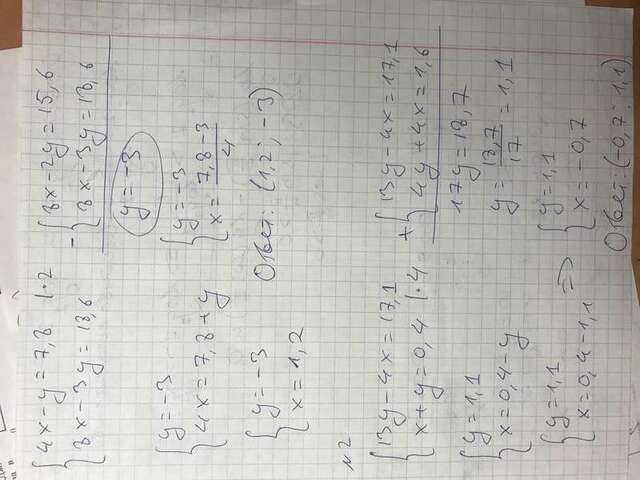 4x-y=7,8 |·2
8x-3y=18,6
- 8x-2y=15,6
8x-3y=18,6
y=-3
y=-3
4x=7,8+y
y=-3
x=7,8-3/4
y=-3
x=1,2
Ответ: (1,2; -3)
№2
13y-4x=17,1
x+y=0,4 |·4
+ 13y-4x=17,1
4y+4x=1,6
17y=18,7
y=18,7/17=1,1
y=1,1
x=0,4-y
y=1,1
x=0,4-1,1
=> y=1,1
x=-0,7
Ответ: (-0,7; 1,1)